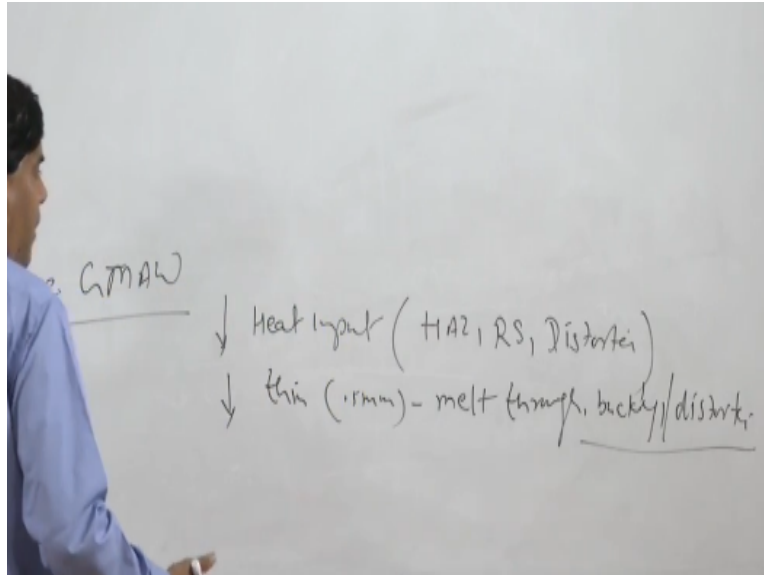 GMAW
↓ Heat Input (HAZ, RS, Distortion)
↓ thin (.5mm) - melt through, buckling/distortion